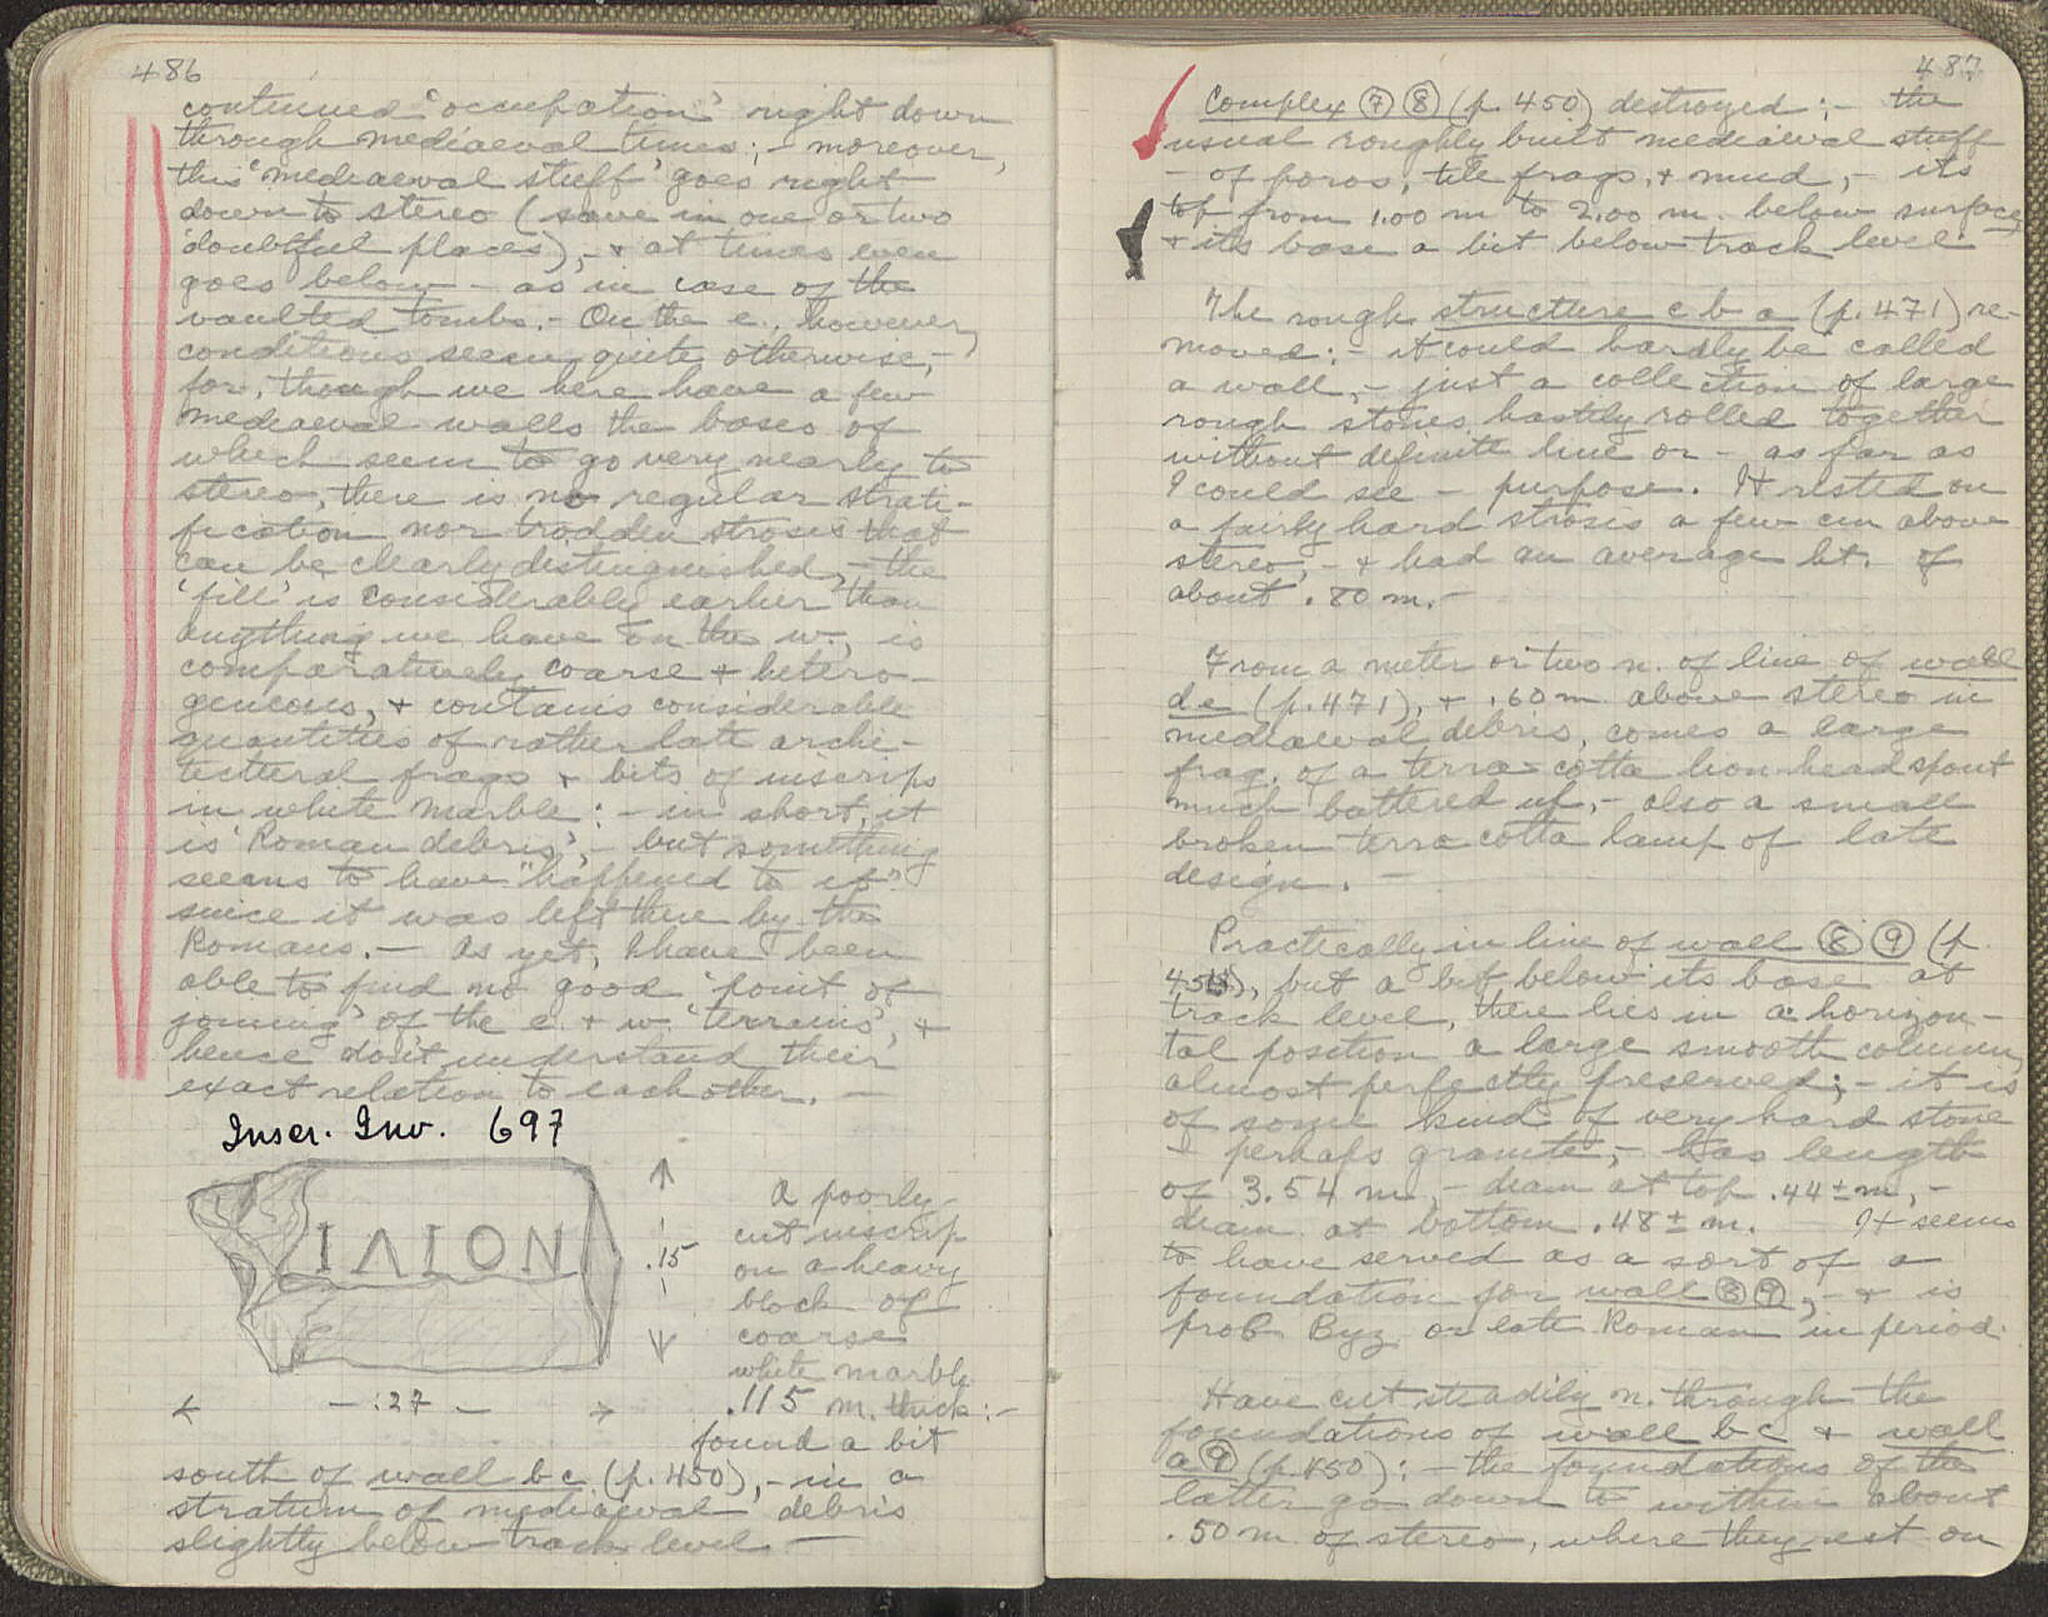 486
continued 'occupation' right down
through mediaeval times; - moreover,
this 'mediaeval stuff' goes right
down to stereo (save in one or two
doubtful places), - & at times even
goes below - as in case of the
vaulted tombs. - On the e., however,
conditions seem quite otherwise, -
for, though we here have a few
mediaeval walls the bases of
which seem to go very nearly to
stereo, there is no regular strati-
fication nor trodden strosis that
can be clearly distinguished, - the
'fill' is considerably earlier than
anything we have on the w., is
comparatively coarse & hetero-
geneous, & contains considerable
quantities of rather late archi-
tectural frags & bits of inscrips
in white marble: - in short, it
is 'Roman debris', - but something
seems to have "happened to it"
since it was left there by the
Romans. - As yet, I have been
able to find no good 'point of
joining' of the e. & w. 'terrains', &
hence don't understand their
exact relation to each other. -
Inscr. Inv. 697
ΙΛΙΟΝ
.15
A poorly-
cut inscrip
on a heavy
block of
coarse
white marble
.27
.115 m. thick: -
found a bit
south of wall bc (p. 450), - in a
stratum of mediaeval debris
slightly below track level -
487
Complex ⑦ ⑧ (p. 450) destroyed; - the
usual roughly built mediaeval stuff
- of poros, tile frags, & mud, - its
top from 1.00 m to 2.00 m. below surface,
& its base a bit below track level.
The rough structure c b a (p. 471) re-
moved: - it could hardly be called
a wall, - just a collection of large
rough stones hastily rolled together
without definite line or - as far as
I could see - purpose. It rested on
a fairly hard strosis a few cm above
stereo, - & had an average ht. of
about .80 m. -
From a meter or two n. of line of wall
de (p. 471), & .60 m above stereo in
mediaeval debris, comes a large
frag. of a terra-cotta lion head spout
much battered up, - also a small
broken terra cotta lamp of late
design. -
Practically in line of wall ⑧ ⑨ (p.
but a bit below its base at
track level, there lies in a horizon-
tal position a large smooth column,
almost perfectly preserved; - it is
of some kind of very hard stone
- perhaps granite, - has length
of 3.54 m, - diam at top .44 ± m, -
diam. at bottom .48 ± m. It seems
to have served as a sort of a
foundation for wall ⑧ ⑨, - & is
prob. Byz. or late Roman in period.
Have cut steadily n. through the
foundations of wall bc & wall
a ⑨ (p. 450): - the foundations of the
latter go down to within about
.50 m of stereo, where they rest on